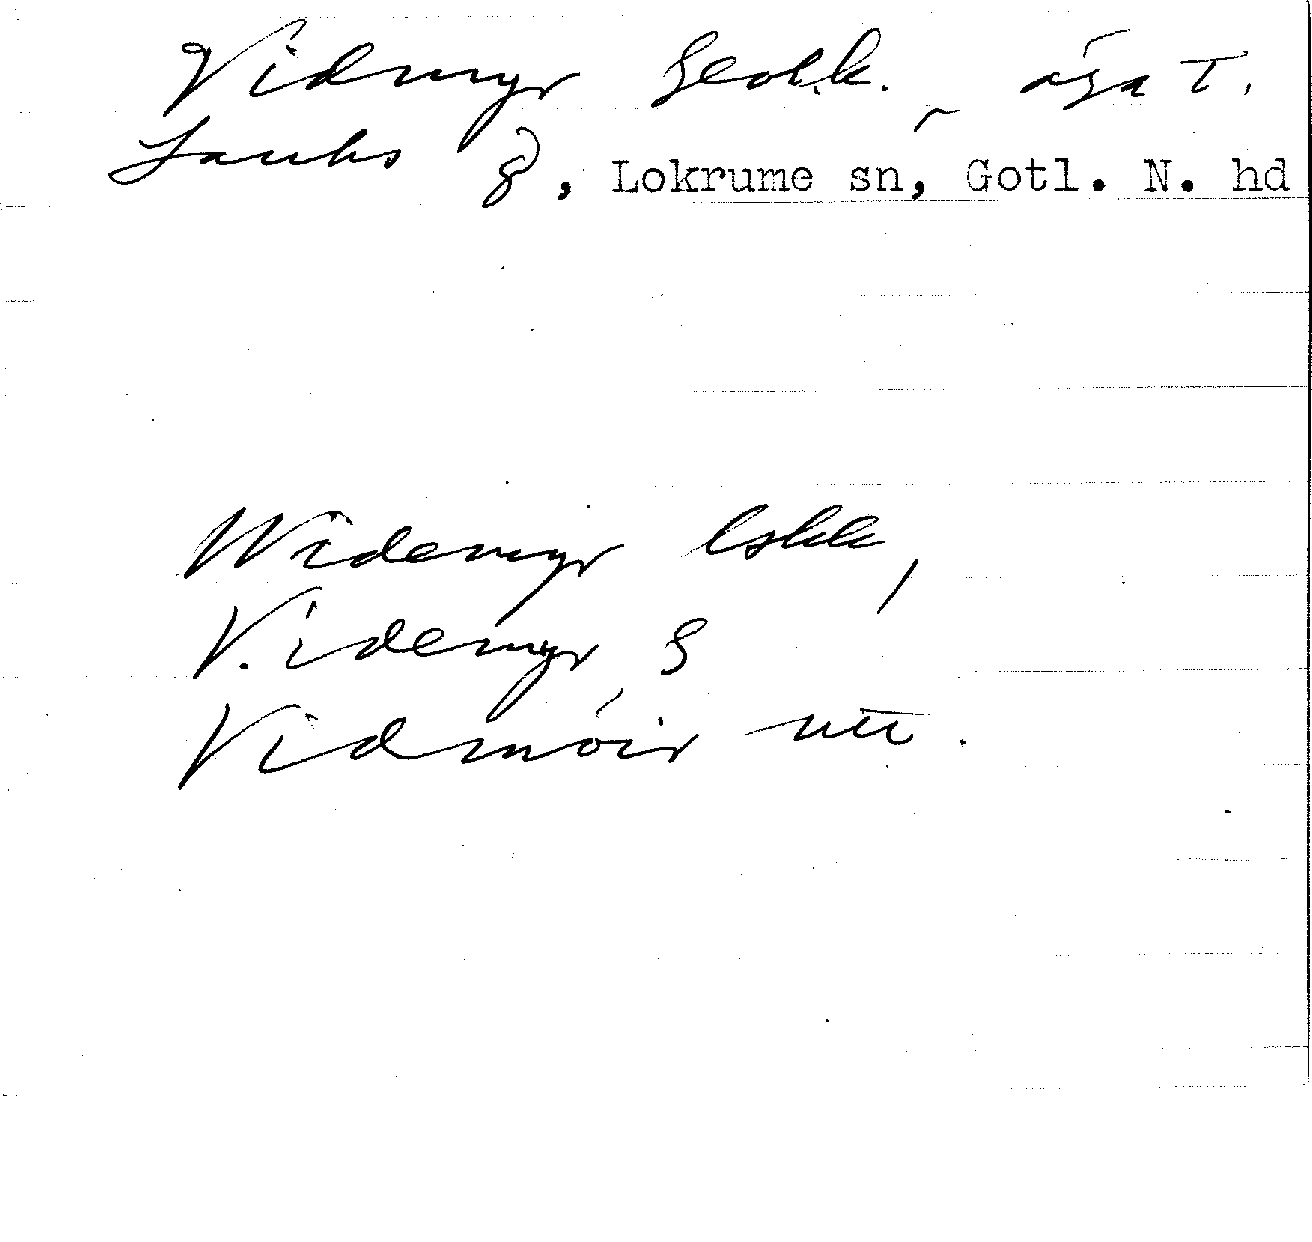 Vidmyr Geol.k. äga T.
Lauks g, Lokrume sn, Gotl. N. hd
Widemyr lskk,
Videmyr G
Vidmöir utt.